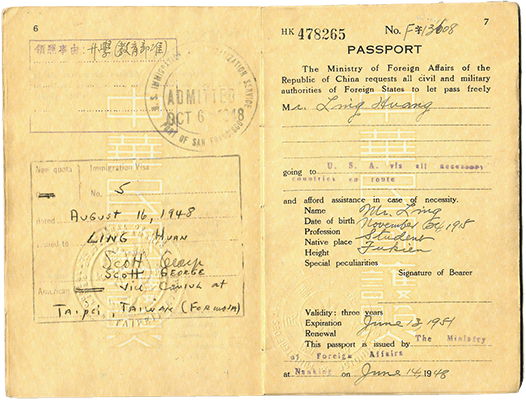 6
領照事由：升學(教育部准)
U.S. IMMIGRATION
NATURALIZATION SERVICE
ADMITTED
OCT 6 1948
PORT OF SAN FRANCISCO
Non quota Immigration Visa
No. 5
dated AUGUST 16, 1948
issued to LING HUAN
SCOTT GEORGE
SCOTT GEORGE
American Vice Consul at
Taipei, TAIWAN (FORMOSA)
7
HK 478265 No. F
PASSPORT
The Ministry of Foreign Affairs of the
Republic of China requests all civil and military
authorities of Foreign States to let pass freely
Mr. Ling Huang
going to U. S. A. via all necessary
countries en route
and afford assistance in case of necessity.
Name Mr. Ling
Date of birth November 1915
Profession Student
Native place Fukien
Height
Special peculiarities
Signature of Bearer
Validity: three years
Expiration June 13 1951
Renewal
This passport is issued by The Ministry
of Foreign Affairs
at Nanking on June 14, 1948